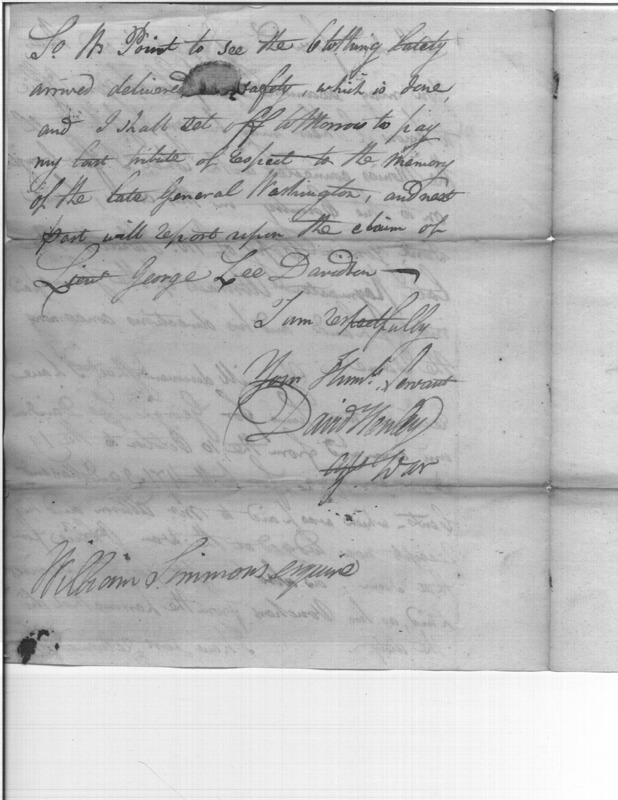 So. W Point to see the Clothing lately
arrived delivered safety, which is done,
and I shall set off toMorrow to pay
my last tribute of respect to the memory
of the late General Washington, and next
post will report upon the claim of
Lieut George Lee Davidson
I am respectfully
Your Humb. Servant
David Henley
Agt War
William Simmons esquire